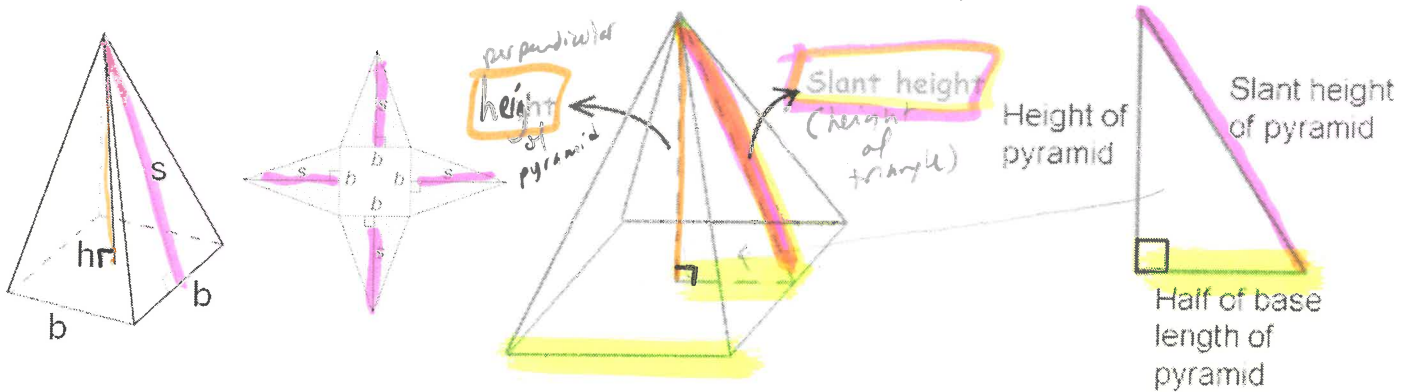 h
s
b
b
s
b
s
b
b
s
b
s
perpendicular
height
of
pyramid
Slant height
(height
of
triangle)
Height of
pyramid
Slant height
of pyramid
Half of base
length of
pyramid